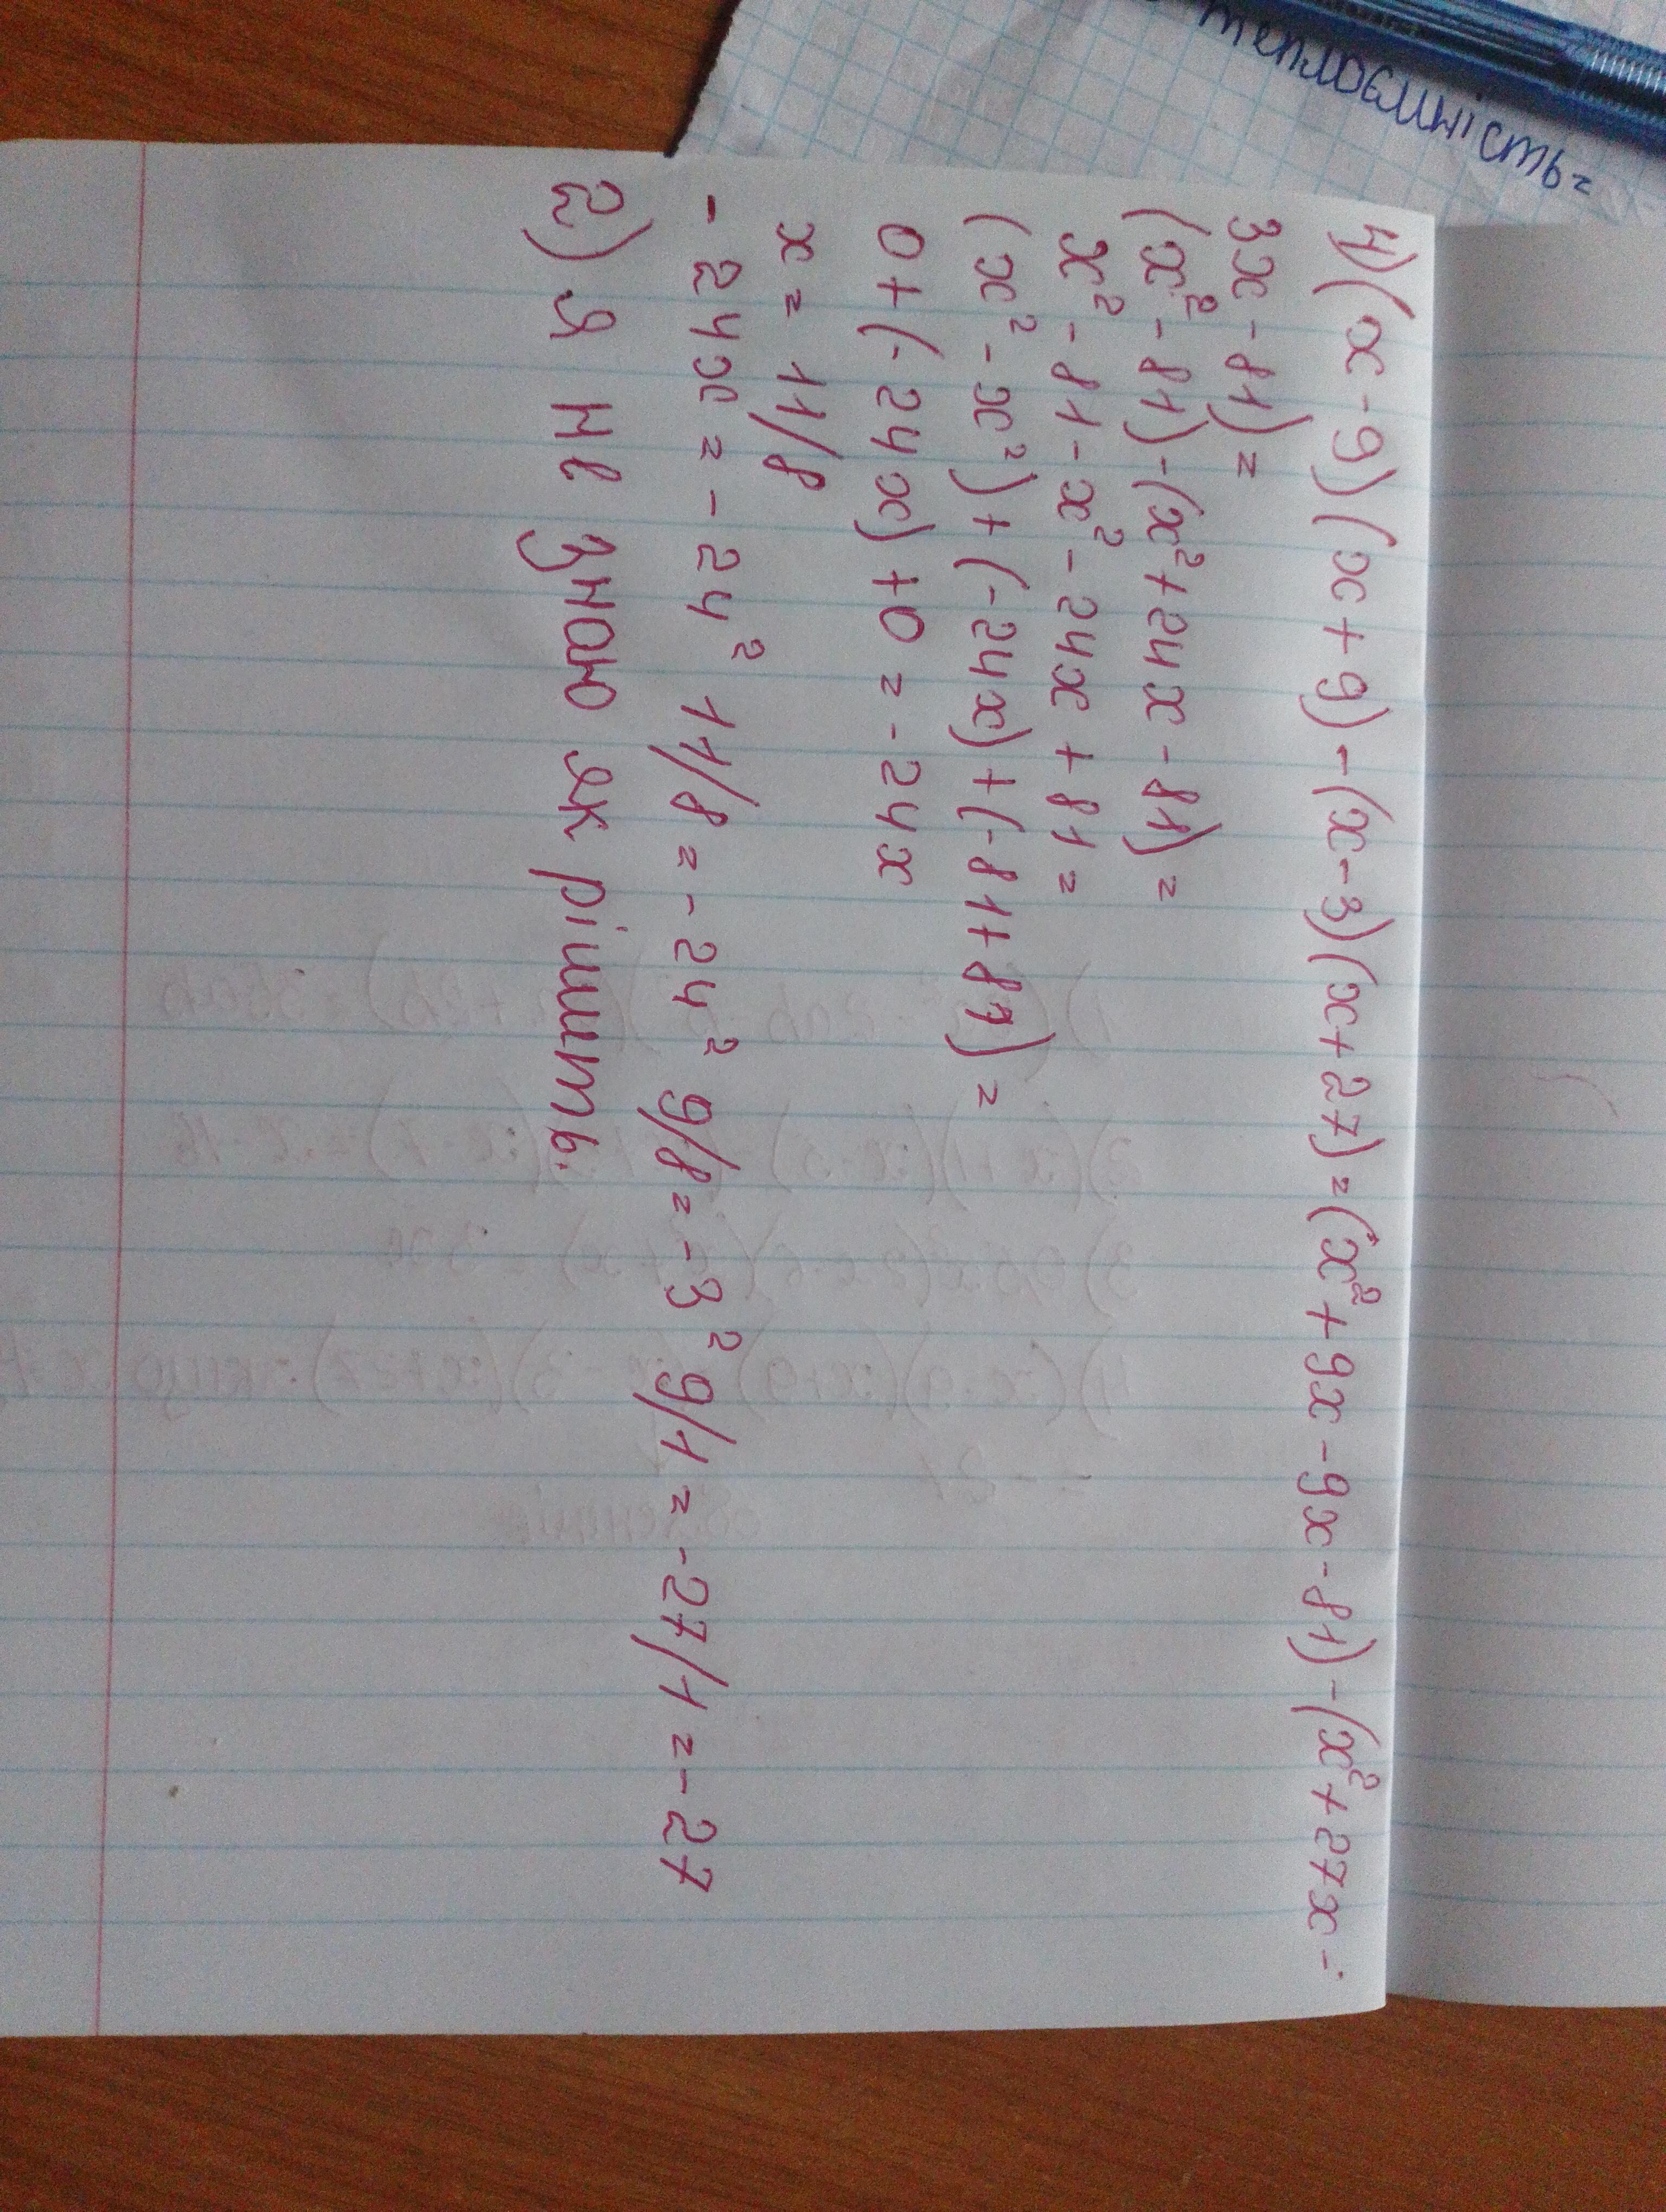 теплоємність=
4)(x-9)(x+9)-(x-3)(x+27)=(x²+9x-9x-81)-(x²+27x-
3x-81)=
(x²-81)-(x²+24x-81)=
x²-81-x²-24x+81=
(x²-x²)+(-24x)+(-81+81)=
0+(-24x)+0=-24x
x=11/8
-24x=-24² 11/8=-24² 9/8=-3² 9/1=-27/1=-27
2) Я не знаю як рішить.